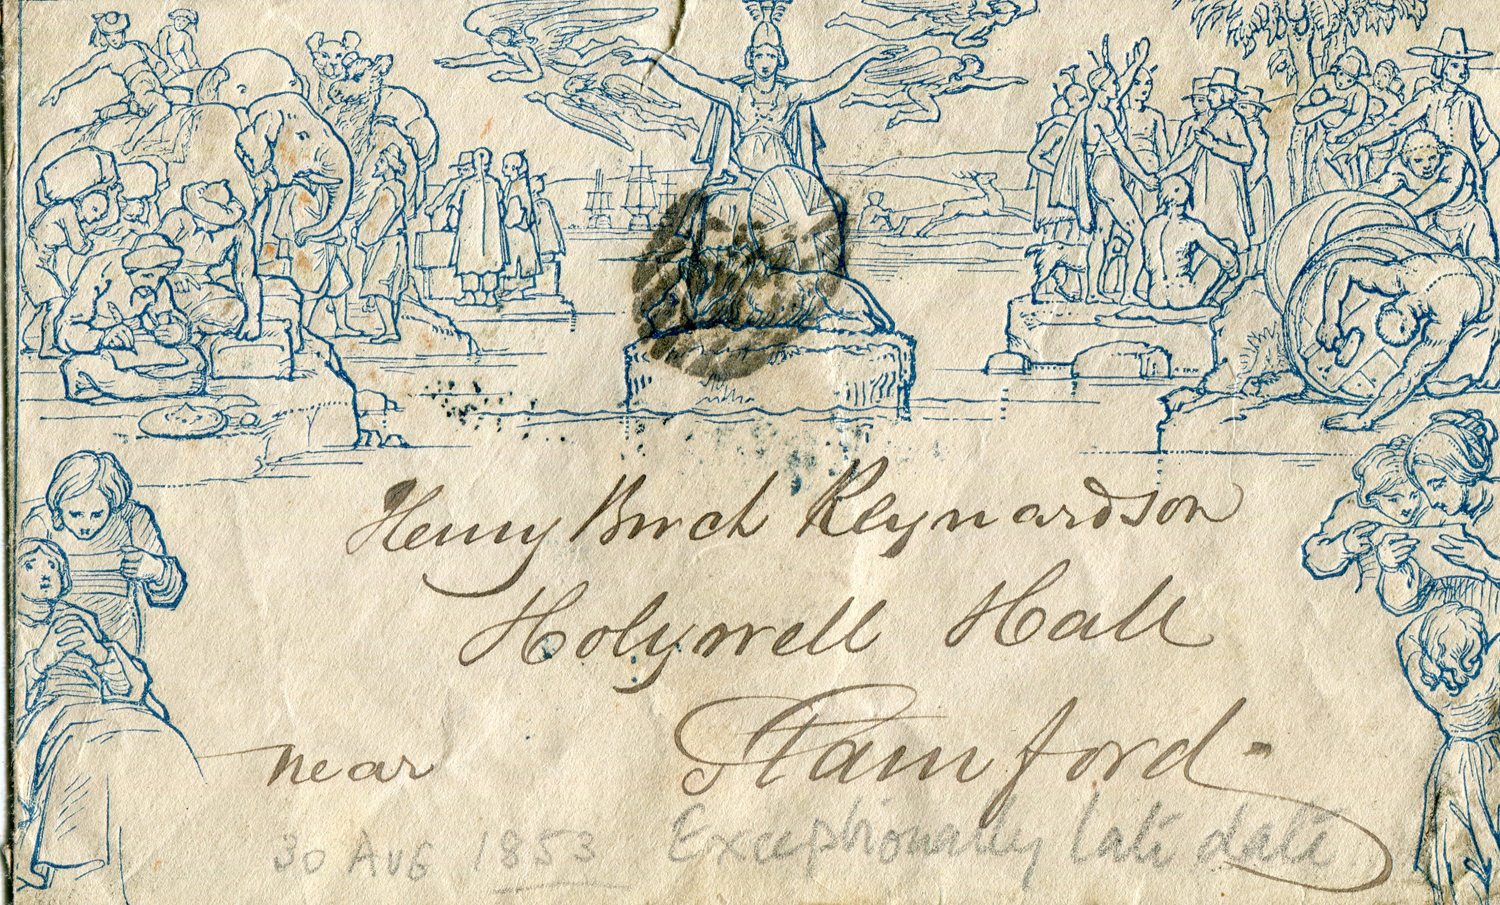 Henry Birch Reynardson
Holywell Hall
near Stamford-
30 AUG 1853 Exceptionally late date